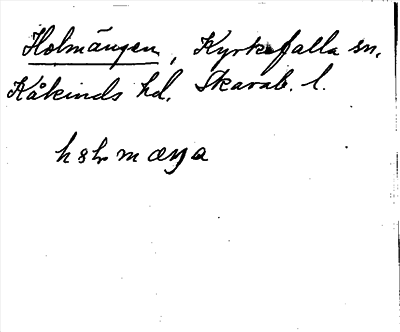 Holmängen, Kyrkefalla sn.
Kåkinds hd. Skarab. l.